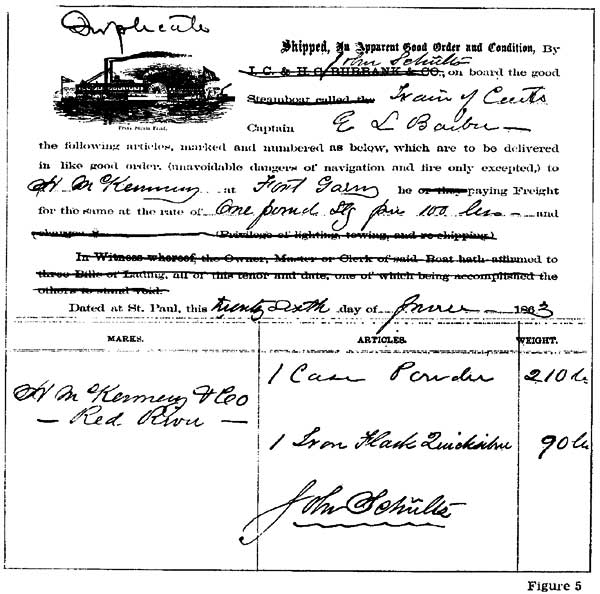 Duplicate
Shipped, In Apparent Good Order and Condition, By
John Schultz
J. C. & H. C. BURBANK & CO., on board the good
Steamboat called the Train of Carts
Captain E L Barber —
the following articles, marked and numbered as below, which are to be delivered
in like good order, (unavoidable dangers of navigation and fire only excepted,) to
H McKenney at Fort Garry he or they paying Freight
for the same at the rate of One pound Stg per 100 lbs — and
charges (Privilege of lighting, towing, and re-shipping.)
In Witness whereof, the Owner, Master or Clerk of said Boat hath affirmed to
three Bills of Lading, all of this tenor and date, one of which being accomplished the
others to stand void.
Dated at St. Paul, this twenty sixth day of 1863
MARKS. ARTICLES. WEIGHT.
1 Case Powder 210 lbs
H McKenney & Co
— Red River —
1 Iron Flask Quicksilver 90 lbs
John Schultz
Figure 5